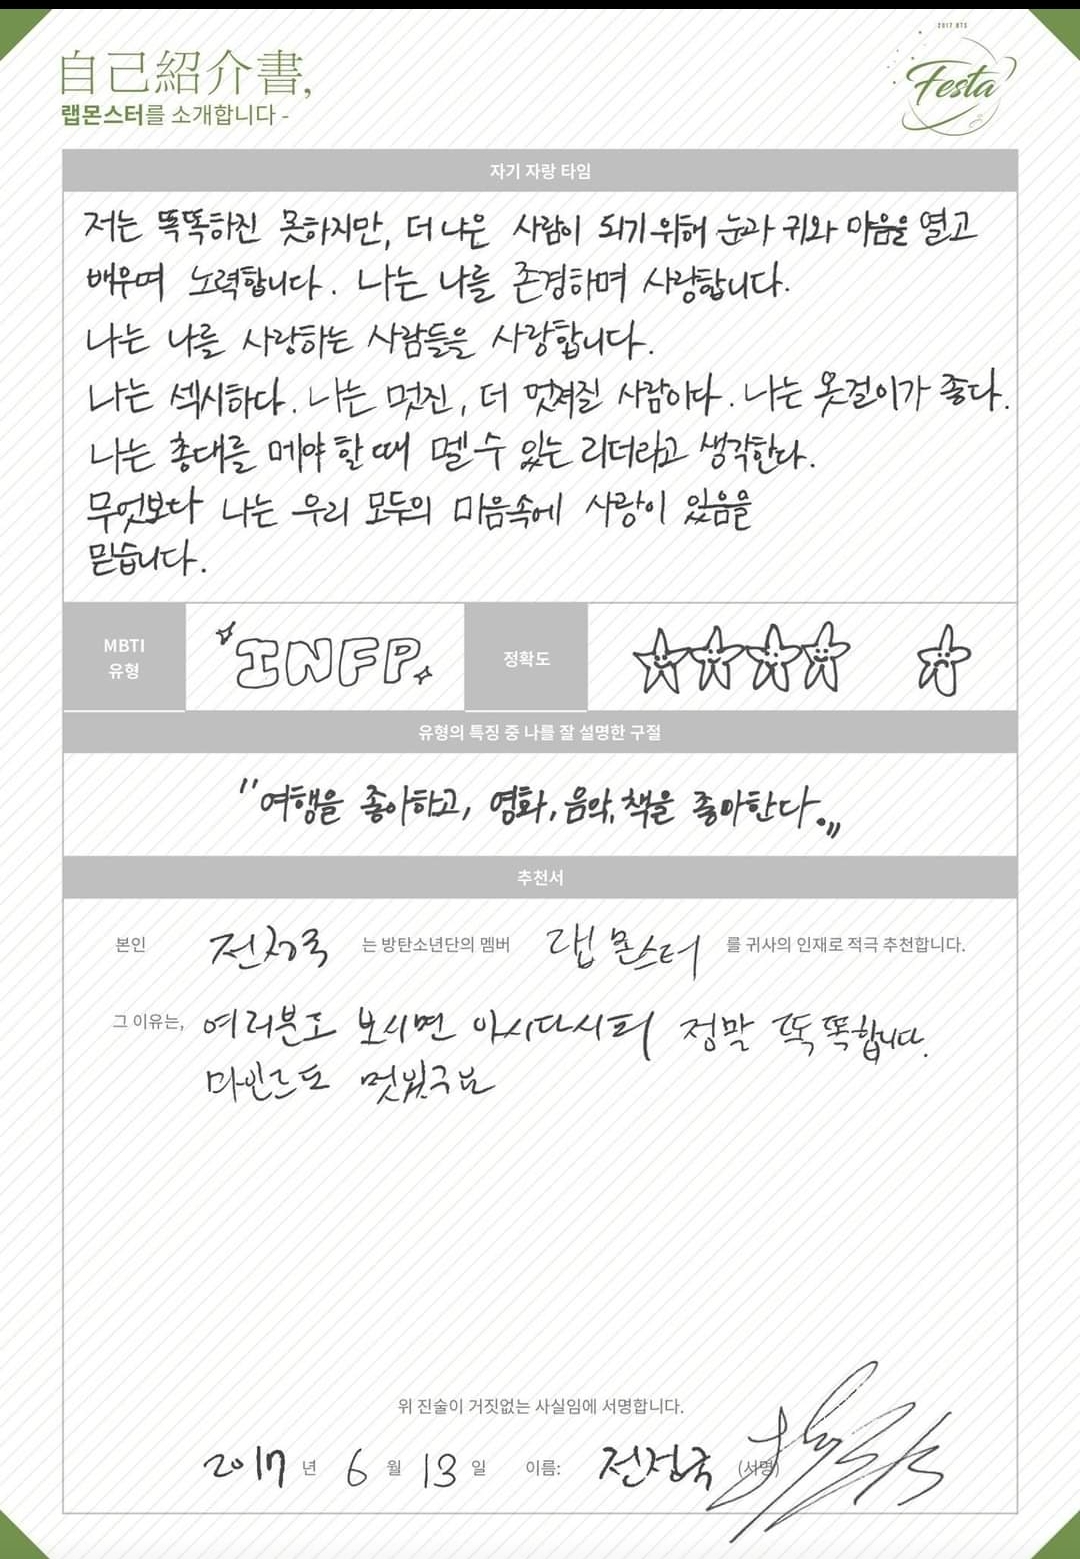 2017 BTS
Festa
自己紹介書,
랩몬스터를 소개합니다 -
자기 자랑 타임
저는 똑똑하진 못하지만, 더 나은 사람이 되기 위해 눈과 귀와 마음을 열고
배우며 노력합니다. 나는 나를 존경하며 사랑합니다.
나는 나를 사랑하는 사람들을 사랑합니다.
나는 섹시하다. 나는 멋진, 더 멋져질 사람이다. 나는 옷걸이가 좋다.
나는 총대를 메야 할 때 멜 수 있는 리더라고 생각한다.
무엇보다 나는 우리 모두의 마음속에 사랑이 있음을
믿습니다.
MBTI
유형
INFP
정확도
유형의 특징 중 나를 잘 설명한 구절
"여행을 좋아하고, 영화, 음악, 책을 좋아한다."
추천서
본인 전정국 는 방탄소년단의 멤버 랩몬스터 를 귀사의 인재로 적극 추천합니다.
그 이유는, 여러분도 보시면 아시다시피 정말 똑똑합니다.
마인드도 멋있구요
위 진술이 거짓없는 사실임에 서명합니다.
2017 년 6 월 13 일 이름: 전정국 (서명)